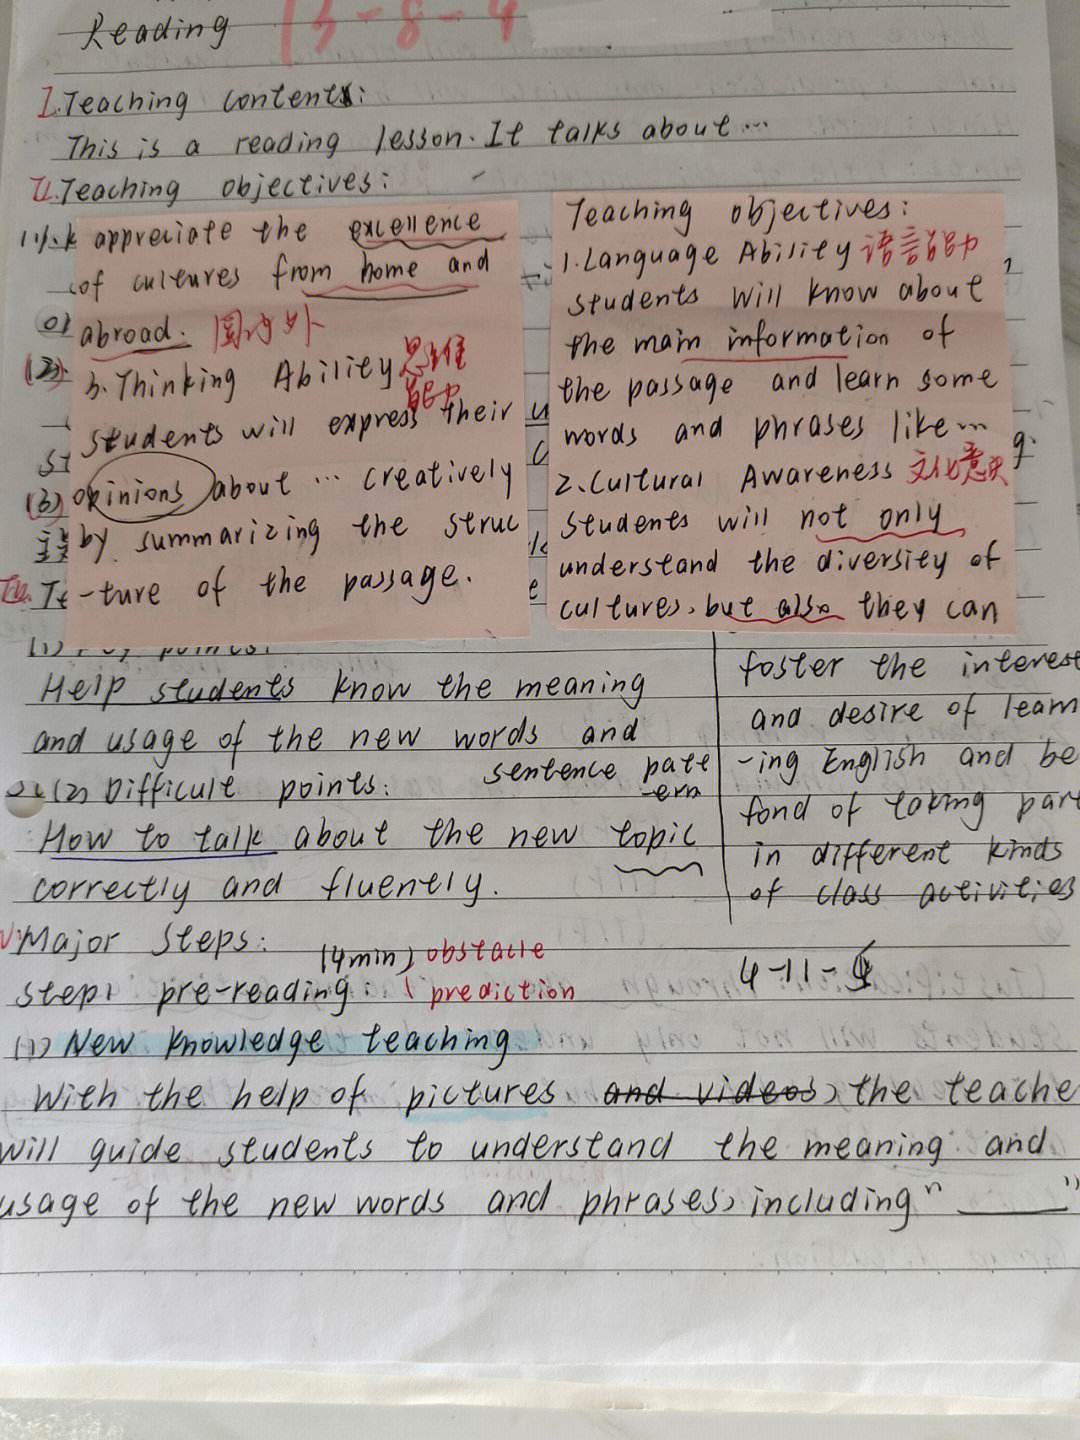 Reading 13-8-4
I. Teaching contents:
This is a reading lesson. It talks about ...
II. Teaching objectives:
Teaching objectives:
1. Language Ability 语言能力
students will know about
the main information of
the passage and learn some
words and phrases like ...
2. Cultural Awareness 文化意识
students will not only
understand the diversity of
cultures, but also they can
appreciate the excellence
of cultures from home and
abroad. 国内外
3. Thinking Ability 思维能力
students will express their
opinions about ... creatively
by summarizing the struc
-ture of the passage.
Help students know the meaning
and usage of the new words and
sentence patt
-ern
(2) Difficult points:
How to talk about the new topic
correctly and fluently.
foster the interest
and desire of learn
-ing English and be
fond of taking part
in different kinds
of class activities
Major Steps:
Step1 pre-reading: (4min) obstacle
prediction
4-11-4
(1) New knowledge teaching
With the help of pictures and videos, the teache
will guide students to understand the meaning and
usage of the new words and phrases, including "____"